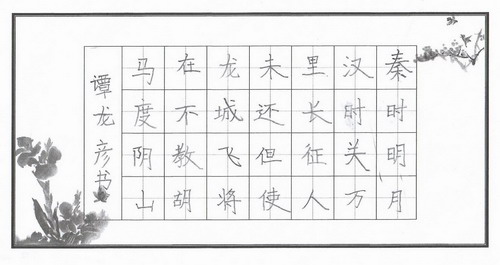 秦时明月
汉时关万
里长征人
未还但使
龙城飞将
在不教胡
马度阴山
谭龙彦书